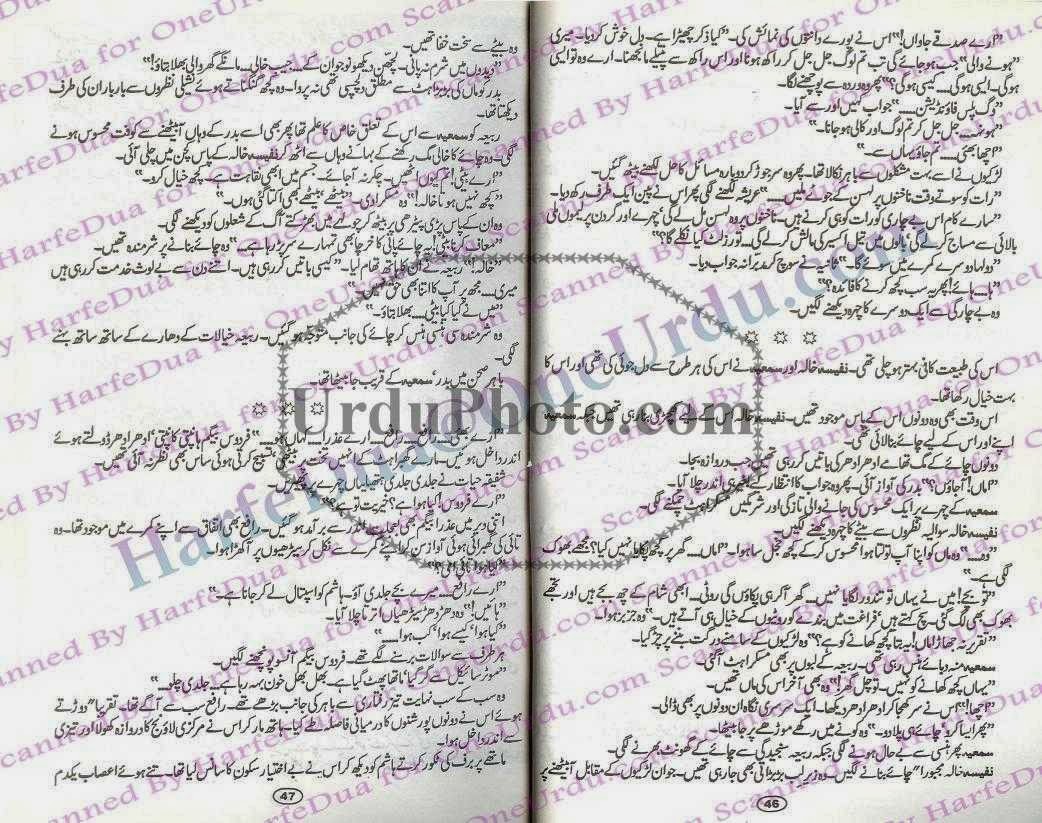 "ارے صدقے جاواں!" اس نے پورے دانتوں کی نمائش کی۔ "کیا ذکر چھیڑا ہے۔ دل خوش کر دیا۔ میری
ہونے والی" جب ہو جائے گی تب تم لوگ جل جل کر راکھ ہونا اور اس راکھ سے پتیلے مانجھنا۔ ارے وہ تو ایسی
ہو گی۔ ایسی ہو گی.... کیسی ہو گی؟" پھر وہ وردہ سے پوچھنے لگا۔
"وگ پلس فاؤنڈیشن....." جواب کہیں اور سے آیا۔
"ہونہہ.... جل جل کر تم لوگ اور کالی ہو جانا۔"
"اچھا بھئی.... تم جاؤ یہاں سے۔"
لڑکیوں نے اسے بہت مشکلوں سے باہر نکالا تھا۔ پھر وہ سر جوڑ کر دوبارہ مسائل کا حل لکھنے بیٹھ گئیں۔
"رات کو سوتے وقت ناخنوں پر لہسن کے جوئے ملیں۔...." عریشہ لکھنے لگی پھر اس نے پین ایک طرف رکھ دیا۔
"سارے کام اس بے چاری کو رات کو ہی کرنے ہیں۔ ناخنوں پر وہ لہسن مل لے گی، چہرے اور گردن پر لیموں ملی
بالائی سے مساج کر لے گی، بالوں میں تیل اکسیر کی مالش کر لے گی.... تو رزلٹ کیا نکلے گا؟"
"دولہا دوسرے کمرے میں سوئے گا۔" ثانیہ نے سوچ کر مدبرانہ جواب دیا۔
"ہا.... ہائے! پھر یہ سب کچھ کرنے کا فائدہ؟"
وہ بے چارگی سے ایک دوسرے کا چہرہ دیکھنے لگیں۔
اس کی طبیعت کافی بہتر ہو چلی تھی۔ نفیسہ خالہ اور سمعیہ نے اس کی ہر طرح سے دل جوئی کی تھی اور اس کا
بہت خیال رکھا تھا۔
اس وقت بھی وہ دونوں اس کے پاس موجود تھیں۔ نفیسہ خالہ اس کے لیے کھچڑی بنا رہی تھیں جبکہ سمعیہ
اپنے اور اس کے لیے چائے بنا لائی تھی۔
دونوں چائے کے مگ تھامے ادھر ادھر کی باتیں کر رہی تھیں جب دروازہ بجا۔
"اماں! آ جاؤں؟" بدر کی آواز آئی۔ پھر وہ جواب کا انتظار کیے بغیر ہی اندر چلا آیا۔
سمعیہ کے چہرے پر ایک محسوس کی جانے والی تازگی اور شرمگیں مسکراہٹ چمکنے لگی۔
نفیسہ خالہ سوالیہ نظروں سے بیٹے کا چہرہ دیکھنے لگیں۔
"وہ...." وہ ماں کو اپنا آپ تولتا ہوا محسوس کر کے کچھ خجل سا ہوا۔ "اماں.... گھر پر کچھ پکایا نہیں کیا؟ مجھے بھوک
لگی ہے۔"
"تو بچے! میں نے یہاں تو تندور لگایا نہیں۔... گھر آ کر ہی پکاؤں گی روٹی۔ ابھی شام کے چھ بجے ہیں اور تجھے
بھوک بھی لگ گئی۔ سچ کہتے ہیں فراغت میں بندے کو روٹیوں کے خیال ہی آتے ہیں۔" وہ جزبز ہوا۔
"تقریر نہ جھاڑ اماں! یہ بتا کچھ کھانے کو ہے؟" وہ لڑکیوں کے سامنے درگت بننے پر چڑ گیا۔
سمعیہ منہ دبائے ہنس رہی تھی۔ ربیعہ کے لبوں پر بھی مسکراہٹ آ گئی۔
"یہاں کچھ کھانے کو نہیں۔ تو چل گھر!" وہ بھی آخر اس کی ماں تھیں۔
"اچھا!" اس نے سر کھجا کر ادھر ادھر دیکھا۔ ایک سرسری نگاہ ان دونوں پر بھی ڈالی۔
"پھر ایسا کرو چائے ہی پلا دو۔" وہ کونے میں رکھے موڑھے پر جا بیٹھا۔
سمعیہ پھر ہنسی سے بے حال ہونے لگی جبکہ ربیعہ سنجیدگی سے چائے کے گھونٹ بھرنے لگی۔
نفیسہ خالہ مجبوراً چائے بنانے لگیں۔ وہ زیر لب بڑبڑاتی بھی جا رہی تھیں۔ جوان لڑکیوں کے مقابل آ بیٹھنے پر
46
وہ بیٹے سے سخت خفا تھیں۔
"دیدوں میں شرم نہ پانی۔ لچھن دیکھو نوجوان کے.... جیب خالی.... مانگے گھر والی بھلا بتاؤ!"
بدر کو ماں کی بڑبڑاہٹ سے مطلق دلچسپی تھی نہ پروا۔ وہ کچھ گنگناتے ہوئے نشیلی نظروں سے بار بار ان کی طرف
دیکھتا تھا۔
ربیعہ کو سمعیہ سے اس کے تعلق خاص کا علم تھا پھر بھی اسے بدر کے وہاں آ بیٹھنے سے کوفت محسوس ہونے
لگی۔ وہ چائے کا خالی مگ رکھنے کے بہانے وہاں سے اٹھ کر نفیسہ خالہ کے پاس کچن میں چلی آئی۔
"ارے بیٹی! تم کیوں اٹھیں۔ چکر نہ آ جائے۔ جسم میں ابھی نقاہت ہے۔ کچھ خیال کرو۔"
"کچھ نہیں ہوتا خالہ!" وہ مسکرا دی۔ "بیٹھے بیٹھے بھی اکتا گئی ہوں۔"
وہ ان کے پاس پڑی پیڑھی پر بیٹھ کر چولہے میں بھڑکتے آگ کے شعلوں کو دیکھنے لگی۔
"معاف کرنا بیٹی! یہ چائے پانی کا خرچا بھی تمہارے سر پر رہا ہے۔" وہ چائے بنانے پر شرمندہ تھیں۔
"خالہ!" ربیعہ نے ان کا ہاتھ تھام لیا۔ "کیسی باتیں کر رہی ہیں۔ اتنے دن سے بے لوث خدمت کر رہی ہیں
میری.... مجھ پر آپ کا اتنا بھی حق نہیں۔"
"میں نے کیا کیا بیٹی.... بھلا بتاؤ۔"
وہ شرمندہ سی ہنسی ہنس کر چائے کی جانب متوجہ ہو گئیں۔ ربیعہ خیالات کے دھارے کے ساتھ ساتھ بہنے
لگی۔
باہر صحن میں بدر، سمعیہ کے قریب جا بیٹھا تھا۔
"ارے بھئی.... رافع.... رافع.... ارے عذرا.... کہاں ہو....." فردوس بیگم ہانپتی کانپتی، ادھر ادھر ڈولتے ہوئے
اندر داخل ہوئیں۔ مارے گھبراہٹ کے انہیں تخت پر بیٹھی، تسبیح کرتی ہوئی ساس بھی نظر نہ آئی تھیں۔
شفیقہ حیات نے جلدی جلدی ہتھیلیاں چہرے پر پھیریں۔
"اے فردوس! کیا ہوا ہے؟ خیریت تو ہے؟"
اتنی دیر میں عذرا بیگم بھی اندر سے برآمد ہو گئیں۔ رافع بھی اتفاق سے اپنے کمرے میں موجود تھا۔ وہ
تائی کی گھبرائی ہوئی آواز سن کر اپنے کمرے سے نکل کر سیڑھیوں پر آ کھڑا ہوا۔
"کیا ہوا تائی امی؟"
"ارے رافع.... میرے بچے جلدی آؤ۔ ہاشم کو اسپتال لے کر جانا ہے۔"
"ہائیں!" وہ دھڑ دھڑ سیڑھیاں اترتا چلا آیا۔
"کیا ہوا، کیسے ہوا، کب ہوا....."
ہر طرف سے سوالات برسنے لگے تھے۔ فردوس بیگم آنسو پونچھنے لگیں۔
"موٹر سائیکل سے گر گیا تھا، ماتھا پھٹ گیا ہے۔ بھل بھل خون بہہ رہا ہے.... جلدی چلو....."
وہ سب کے سب نہایت تیز رفتاری سے باہر کی جانب بڑھے تھے۔ رافع سب سے آگے تھا۔ تقریباً دوڑتے
ہوئے اس نے دونوں پورشنوں کا درمیانی فاصلہ طے کیا۔ ہاتھ مار کر اس نے مرکزی لاؤنج کا دروازہ کھولا اور تیزی
سے اندر داخل ہوا۔
ماتھے پر برف کی ٹکور کرتے ہاشم کو دیکھ کر اس نے بے اختیار سکون کا سانس لیا تھا۔ تنے ہوئے اعصاب یکدم
47
UrduPhoto.com
HarfeDua@OneUrdu.com
Scanned By HarfeDua for OneUrdu.com